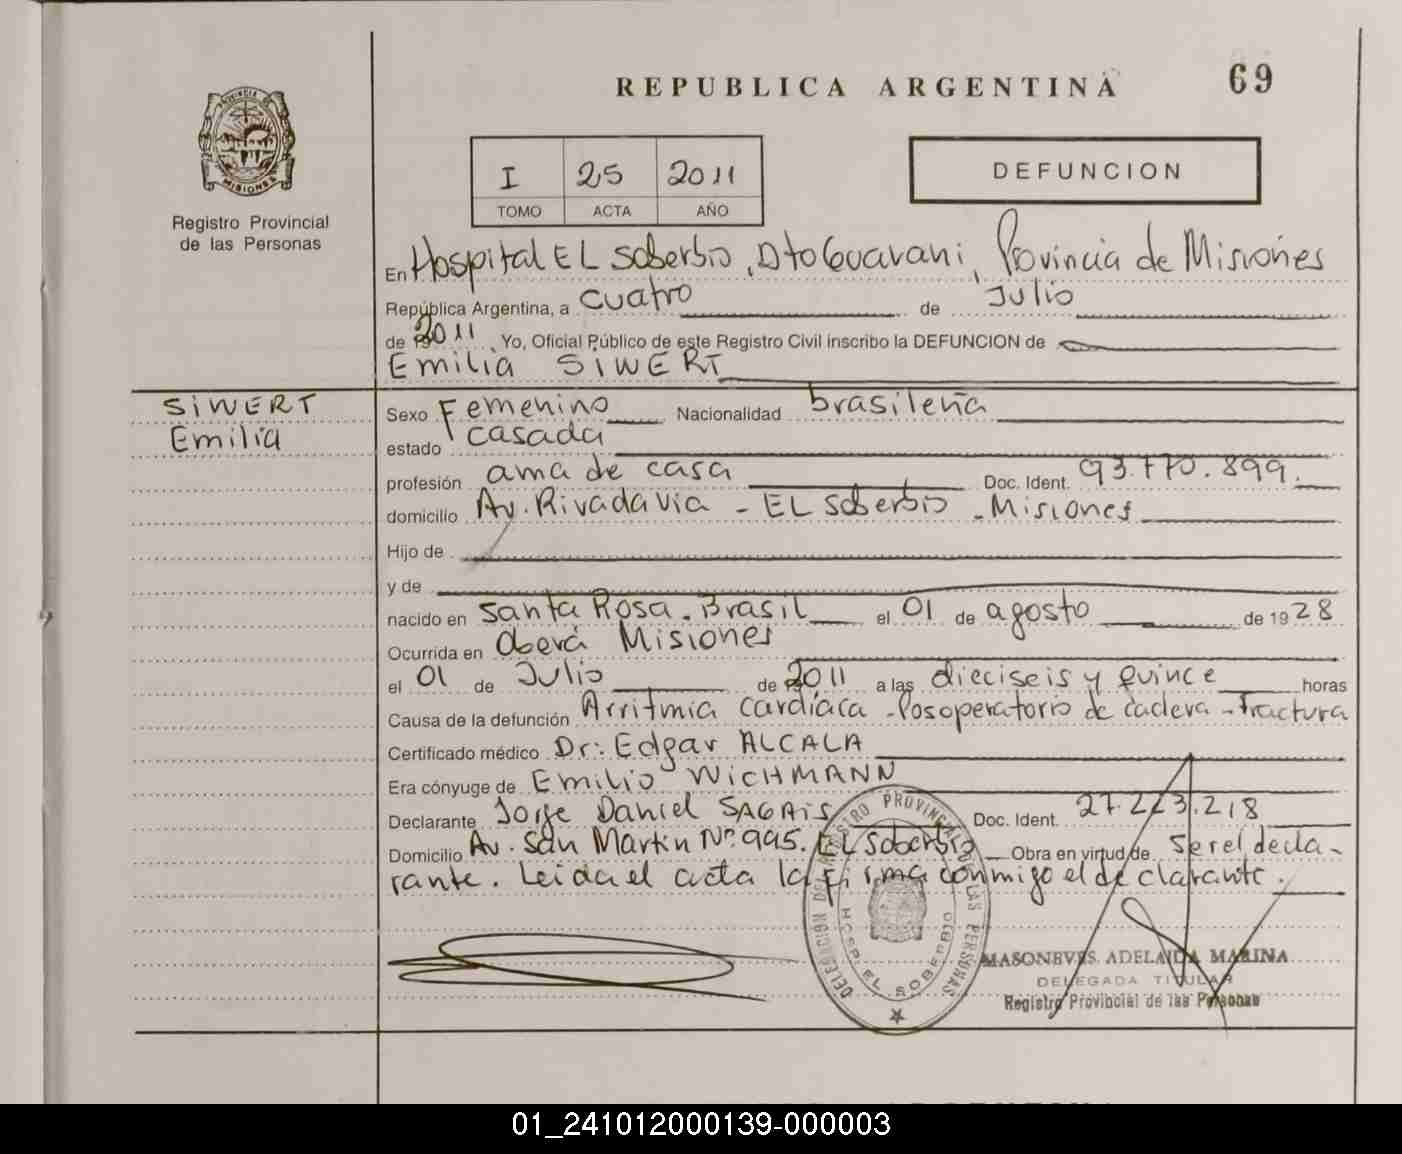 REPUBLICA ARGENTINA
69
PROVINCIA DE
MISIONES
Registro Provincial
de las Personas
I 25 2011
TOMO ACTA AÑO
DEFUNCION
En Hospital EL Soberbio, Dto Guarani, Provincia de Misiones
República Argentina, a cuatro de Julio
de 2011. Yo, Oficial Público de este Registro Civil inscribo la DEFUNCION de
Emilia SIWERT
SIWERT
Emilia
Sexo Femenino Nacionalidad brasileña
estado casada
profesión ama de casa Doc. Ident. 93.770.899.
domicilio Av. Rivadavia - EL Soberbio - Misiones
Hijo de
y de
nacido en Santa Rosa. Brasil el 01 de agosto de 1928
Ocurrida en Oberá Misiones
el 01 de Julio de 2011 a las dieciseis y quince horas
Causa de la defunción Arritmia cardíaca - Posoperatorio de cadera - Fractura
Certificado médico Dr: Edgar ALCALA
Era cónyuge de Emilio WICHMANN
Declarante Jorge Daniel SAGAIS Doc. Ident. 27.223.218
Domicilio Av. San Martin Nº 995. EL Soberbio Obra en virtud de Ser el decla-
rante. Leida el acta la firma conmigo el declarante.
DELEGACION DEL REGISTRO PROVINCIAL DE LAS PERSONAS
HOSP. EL SOBERBIO
MASONEVES ADELAIDA MARINA
DELEGADA TITULAR
Registro Provincial de las Personas
01_241012000139-000003